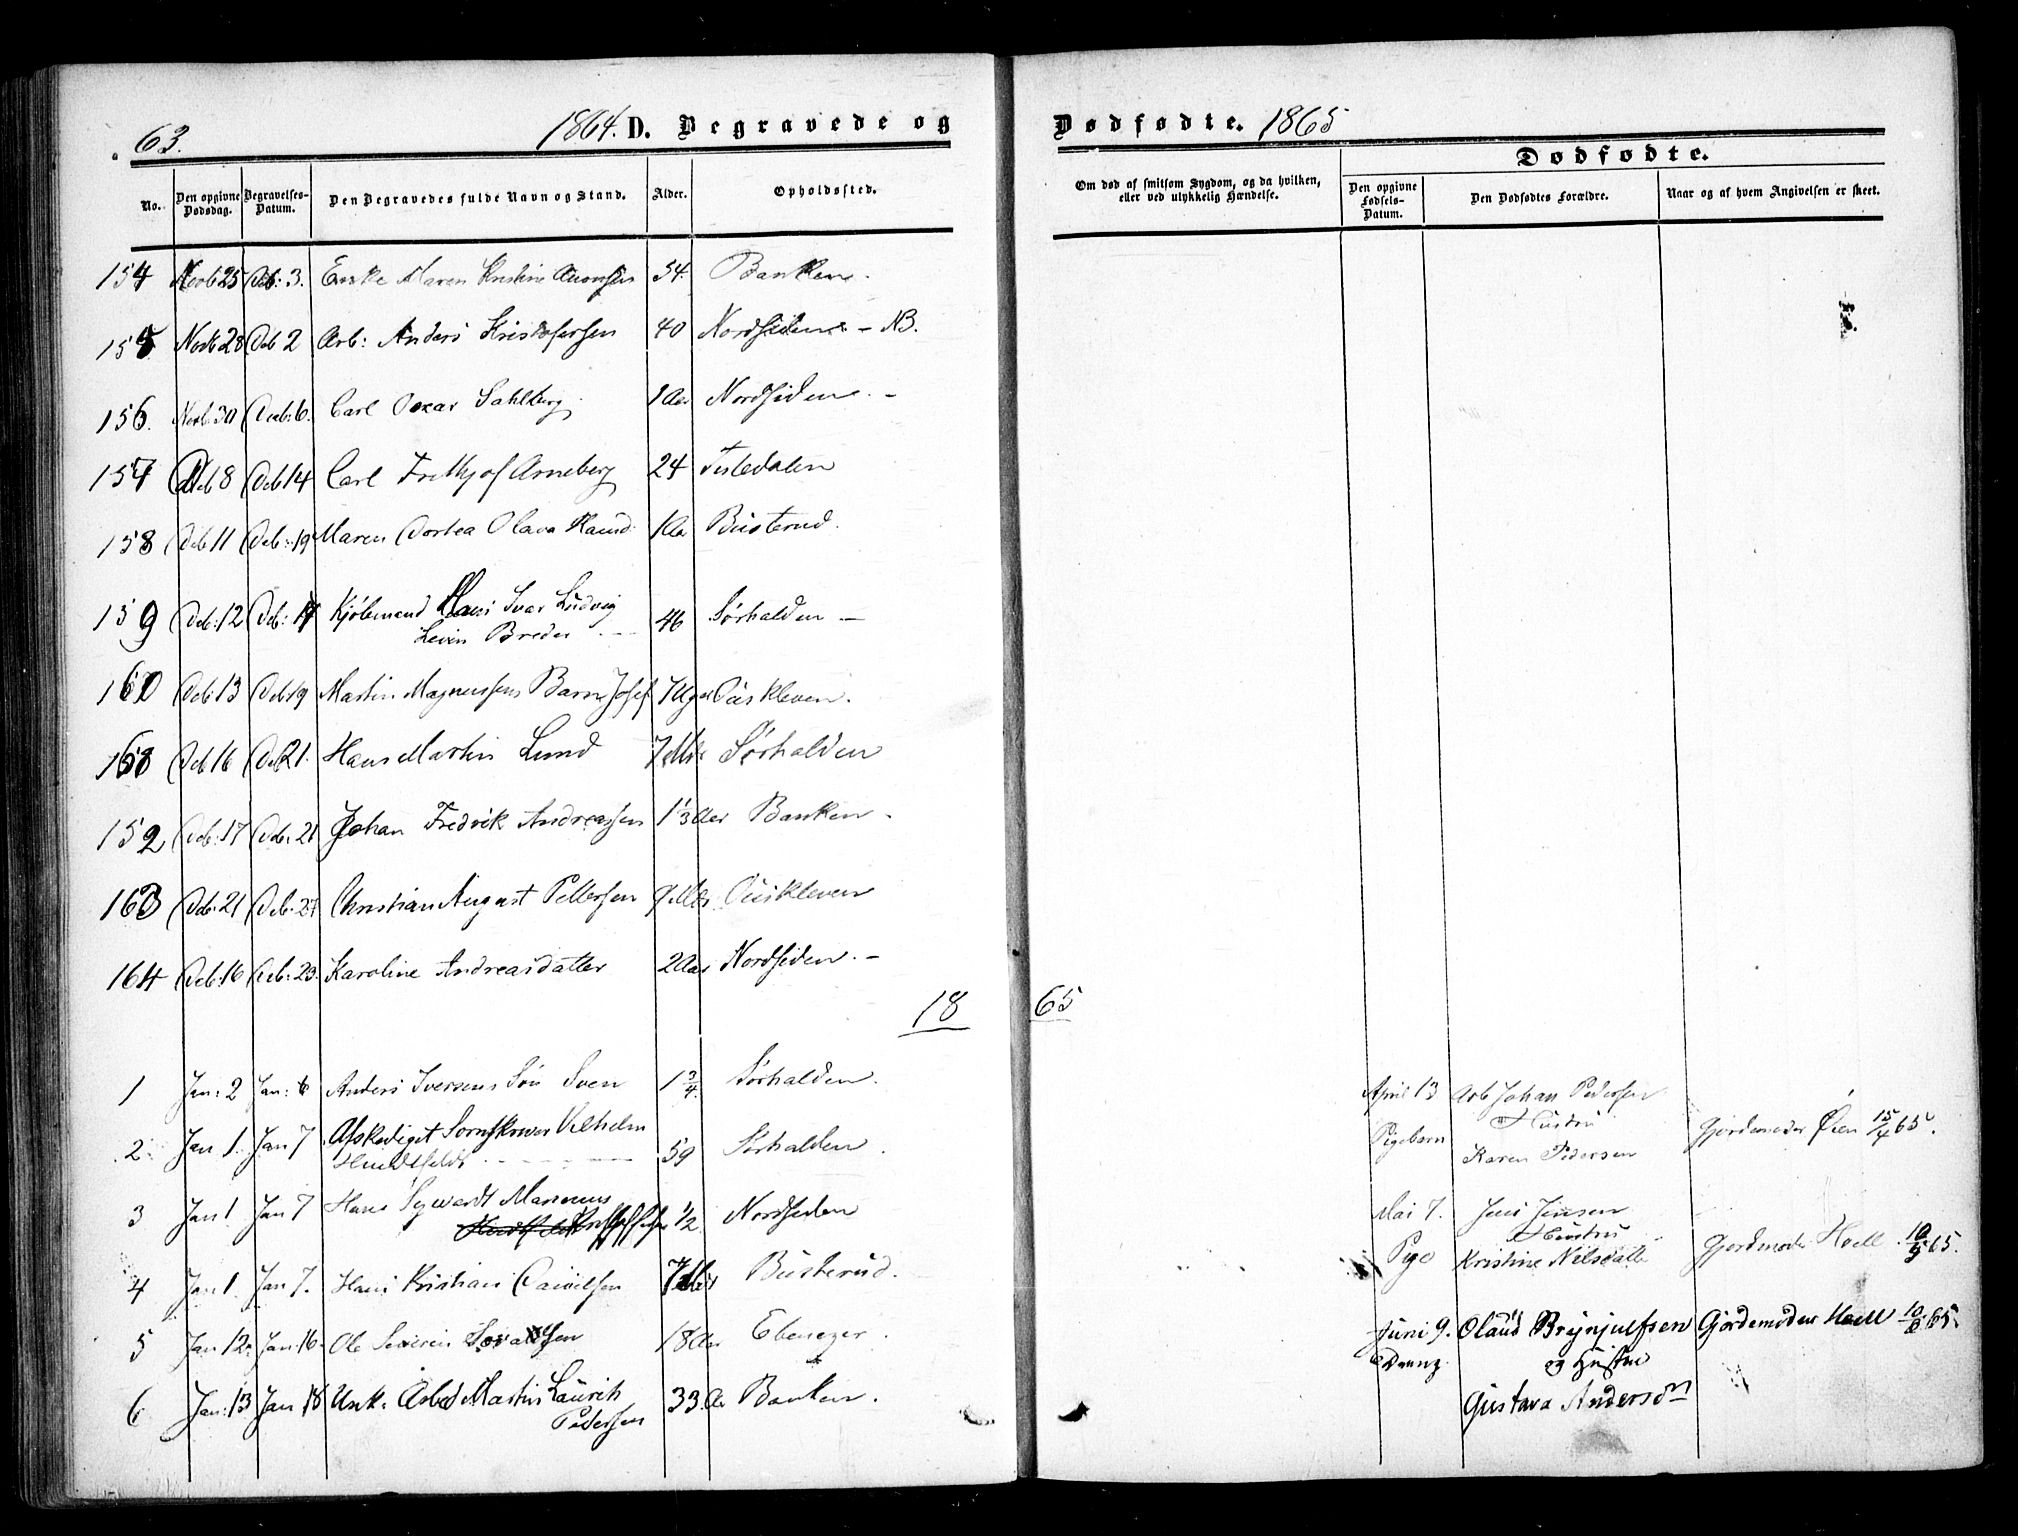 63.
1864. D. Begravede og Dødfødte. 1865
Dødfødte.
No. Den opgivne Dødsdag. Begravelses-Datum. Den Begravedes fulde Navn og Stand. Alder. Opholdssted. Om død af smitsom Sygdom, og da hvilken, eller ved ulykkelig Hændelse. Den opgivne Fødsels-Datum. Den Dødfødtes Forældre. Naar og af hvem Angivelsen er skeet.
154 Novb 25 Deb: 3. Enke Maren Kristine 54. Banken.
155 Novb 28 Deb 2 Arb: Anders Kristofersen 40 Nordsiden - NB.
156. Novb: 30 Deb: 6. Carl Oscar Sahlberg. 1 Aar Nordsiden. -
157 Deb 8 Deb 14 Carl Frithjof Arneberg 24 Tistedalen
158 Deb 11 Deb: 19 Maren Dortea Olava 1 Aar Busterud.
159 Deb: 12 Deb: 17 Kjøbmand Hans Ivar Ludvig 46 Sørhalden -
Levin Breder
160 Deb: 13 Deb 19 Martin Magnussens Barn Josef 7 Uger Ouskleven.
168 Deb 16 Deb 21. Hans Martin Lund 7 Mdr Sørhalden
152 Deb: 17 Deb: 21 Johan Fredrik Andreassen 1 1/3 Aar Banken.
163 Deb: 21 Deb: 27 Christian August Pettersen 9 Mdr Ouskleven
164 Deb: 16 Deb: 23. Karoline Andreasdatter 2 Aar Nordsiden. -
18 65
1 Jan: 2 Jan: 6 Anders Iversens Søn Sven 1 3/4. Sørhalden.
2 Jan 1. Jan 7 Afskediget Vilhelm
59 Sørhalden.
3 Jan 1 Jan 7 Hans Sigvardt Marenius
1/2 Nordsiden
4 Jan 1 Jan 7. Hans Kristian Danielsen 7 Mdr Busterud.
5 Jan 12. Jan 16. Ole Severin 18 Aar Ebenezer.
6 Jan: 13 Jan 18 Unk: Arbd Martin Laurits 33. Aar Banken.
Pedersen
April 13 Arb Johan Pedersen
Hustru
Pigebarn Karen Pedersen Gjordemoder Øien 15/4 65.
Mai 7. Jens Jensen
Hustru
Pige Kristine Nilsdatter Gjordemoder Hoell 10/5 65.
Juni 9. Olaus Brynjulfsen Gjordemoder Hoell 10/6 65.
Dreng. og Hustru
Gustava Andersdn